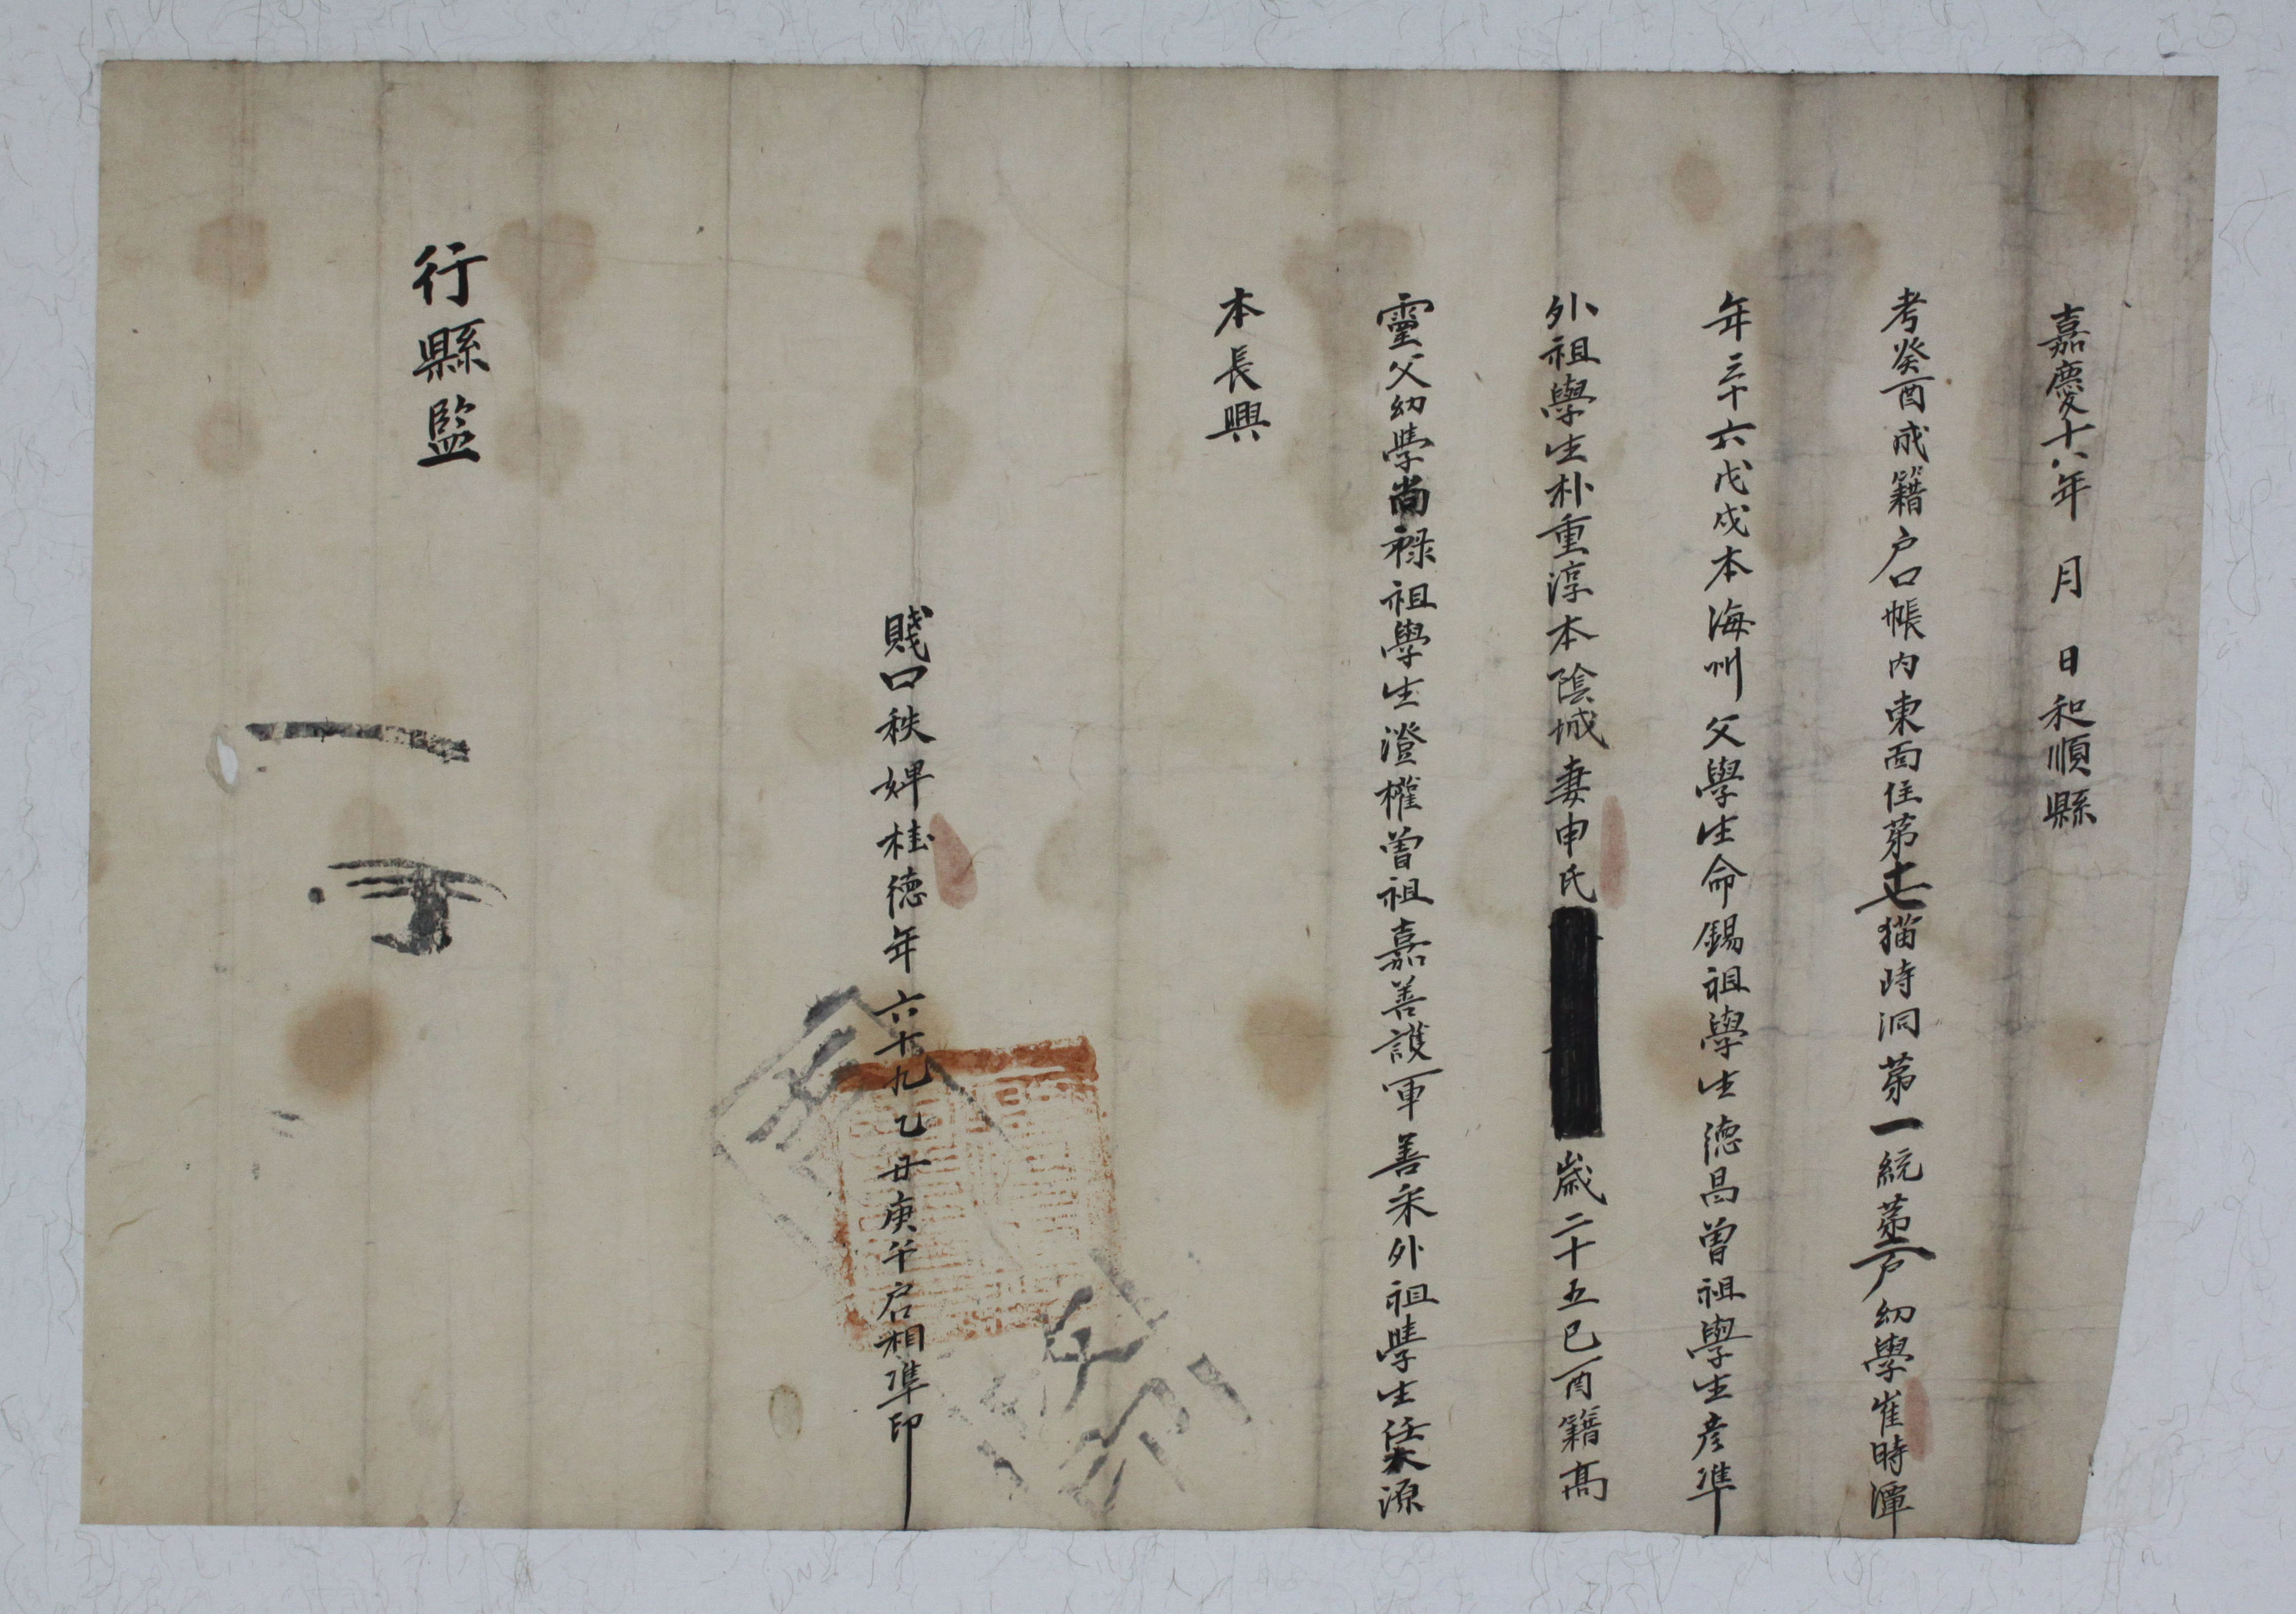 嘉慶十八年　月　日和順縣
考癸酉成籍户口帳内東面住第十七猫峙洞第一統第一户幼學崔時潭
年三十六戊戌本海州父學生命錫祖學生德昌曾祖學生彦準
外祖學生朴重淳本陰城妻申氏歲二十五己酉籍高
靈父幼學尚祿祖學生澄權曾祖嘉善護軍善采外祖學生任大源
本長興
賤口秩婢桂德年六十九乙丑庚午户口相準印
行縣監